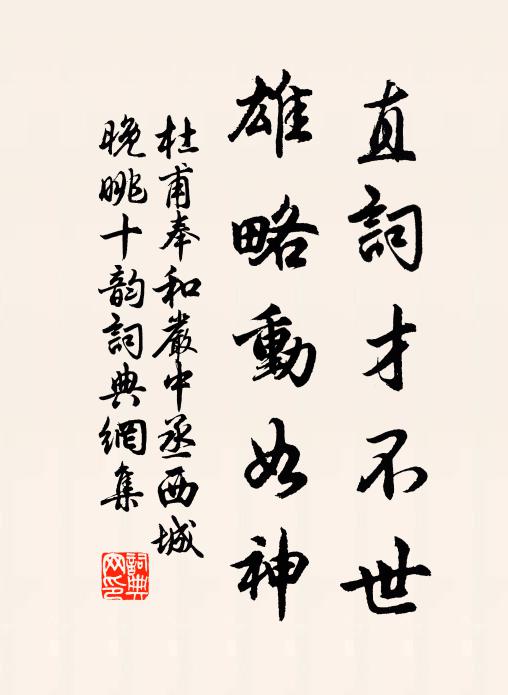 直詞才不世
雄略動如神
杜甫奉和嚴中丞西城
晚眺十韵詞典網集
詞典
网印